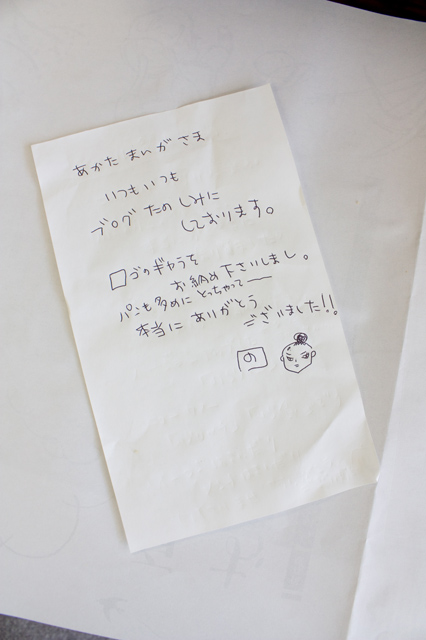 あかた まいが さま
いつもいつも
ブログ たのしみに
しております。
ロゴのギャラを
お納め下さいまし。
パンも多めに とっちゃってー
本当に ありがとう
ございました!!
の